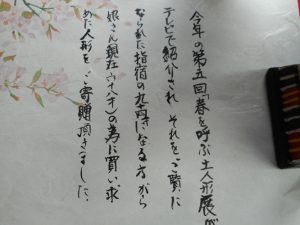 今年の第五回「春を呼ぶ土人形展」が
テレビで紹介され それをご覧に
なられた指宿の九十になる方から
娘さん(現在六十八才)の為に買い求
めた人形を、ご寄贈頂きました。